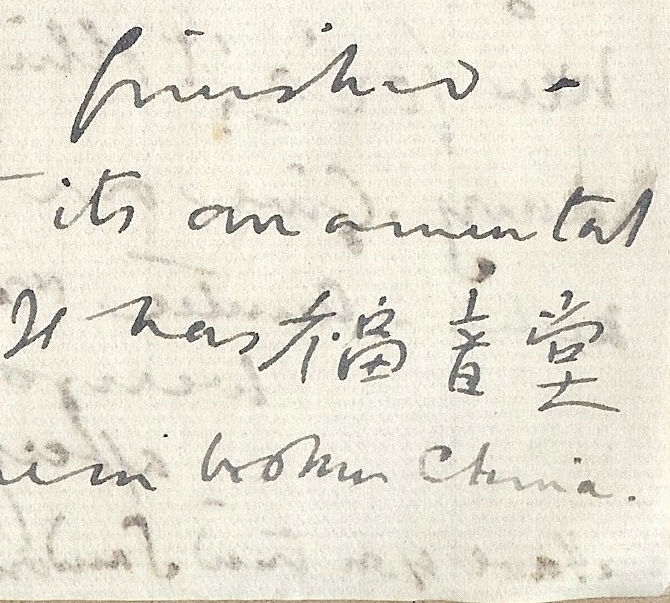 finished -
its ornamental
It has 福音堂
in broken China.